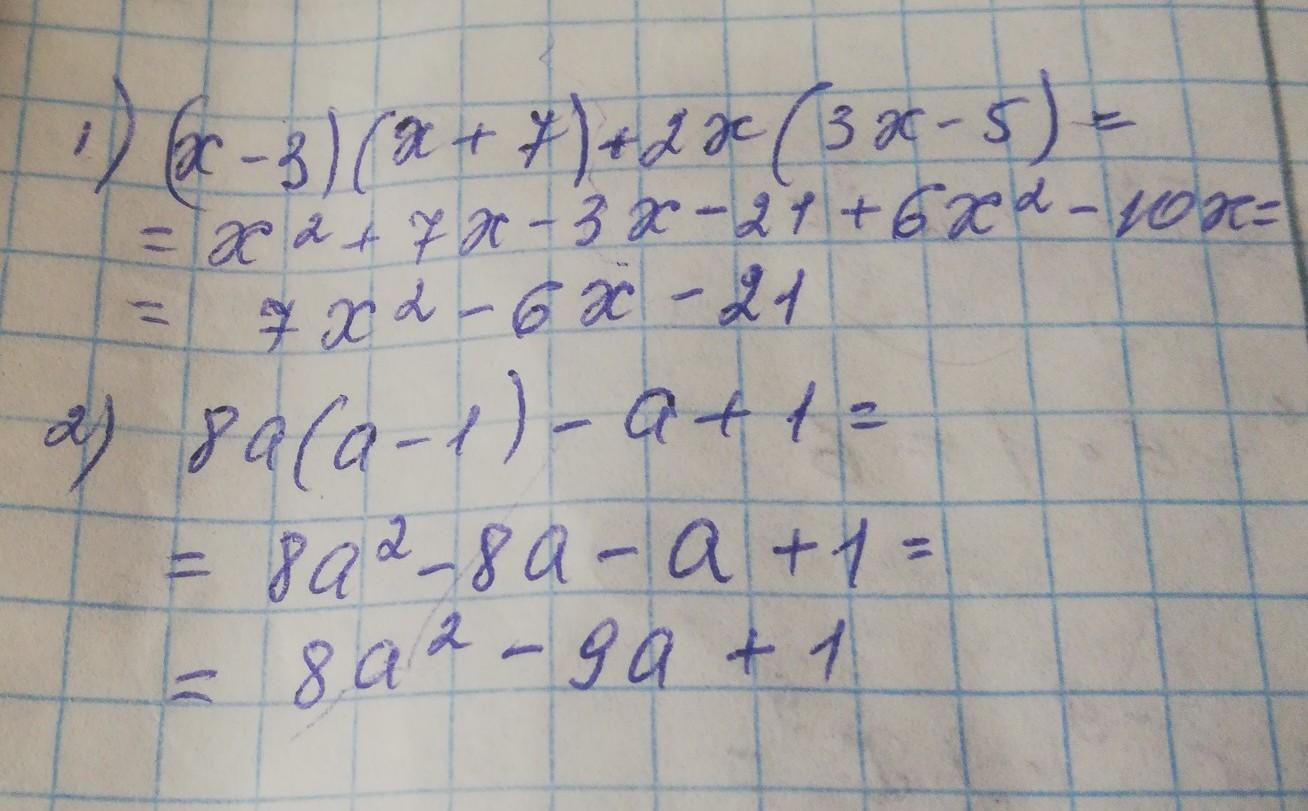 1) (x-3)(x+7)+2x(3x-5)=
= x²+7x-3x-21+6x²-10x=
= 7x²-6x-21
2) 8a(a-1)-a+1=
= 8a²-8a-a+1=
= 8a²-9a+1